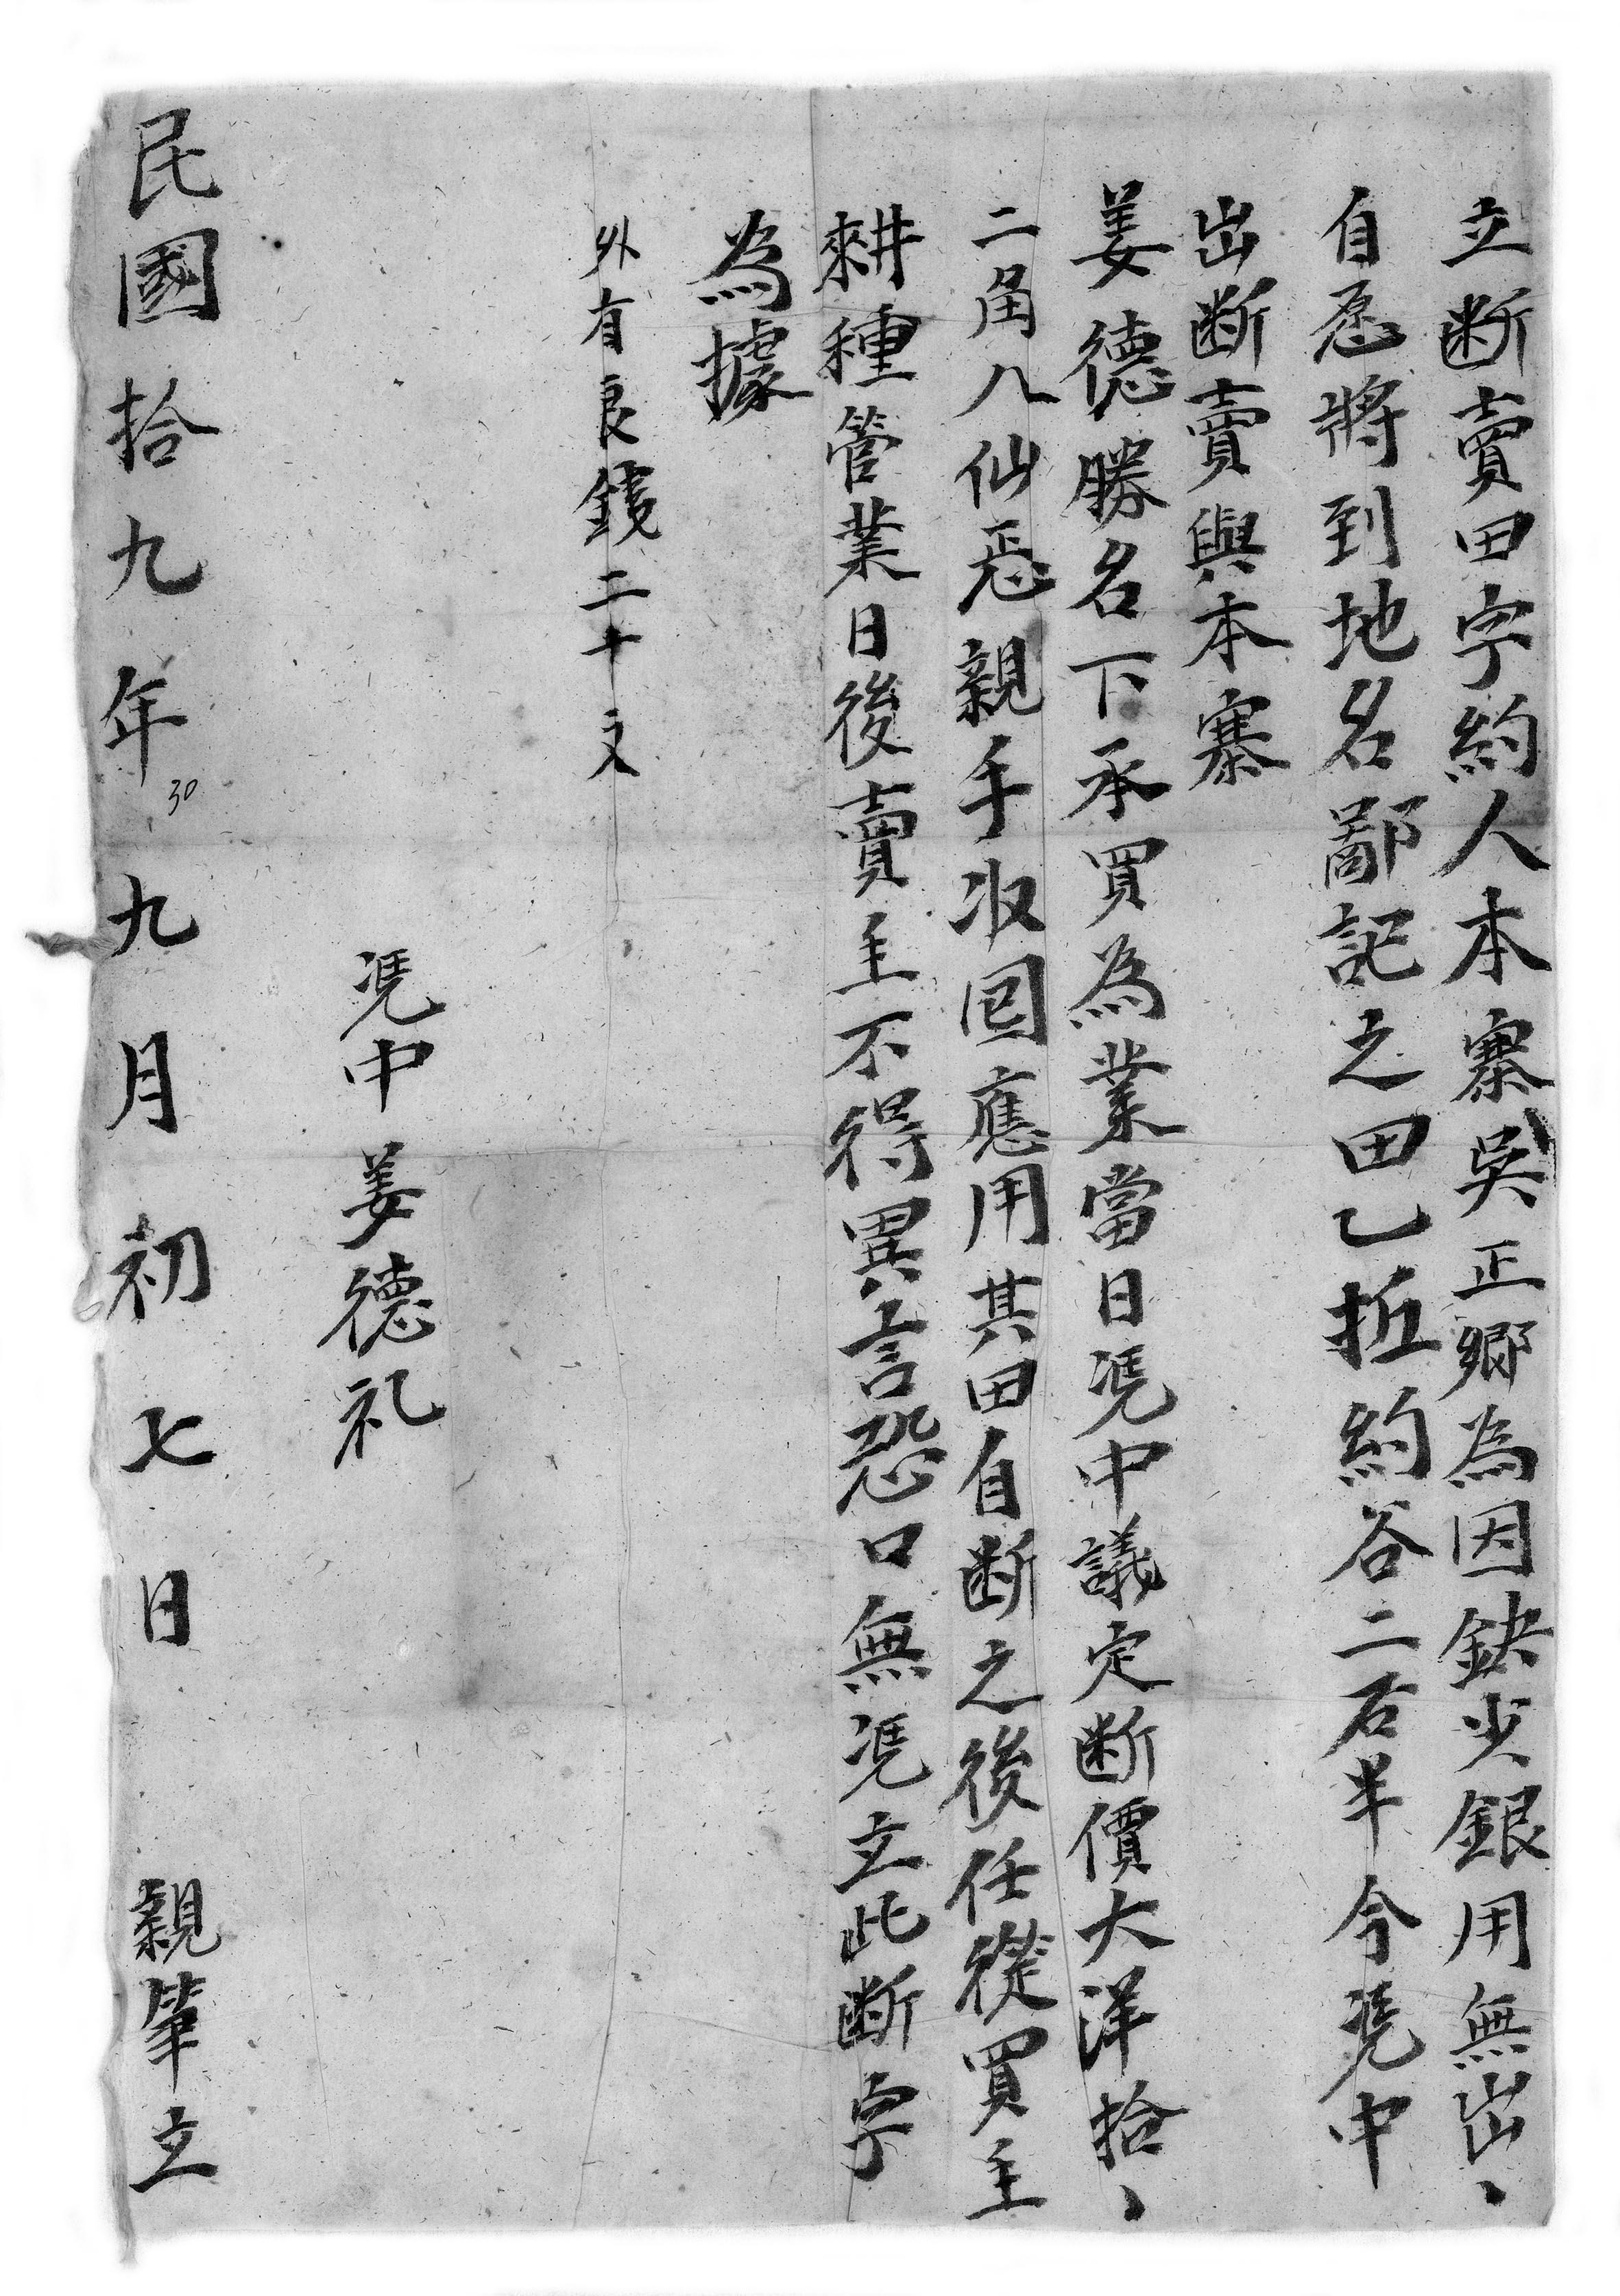 立断賣田字約人本寨吳正鄉為因缺少銀用無出、
自愿將到地名鄙記之田乙坵約谷二石半今凭中
出断賣與本寨
姜德勝名下承買為業當日凭中議定断價大洋拾、
二角八仙忢親手收囬應用其田自断之後任從買主
耕種管業日後賣主不得異言恐口無凭立此断字
為據
外有良錢二十文
凭中姜德礼
民國拾九年九月初七日 親筆立
30